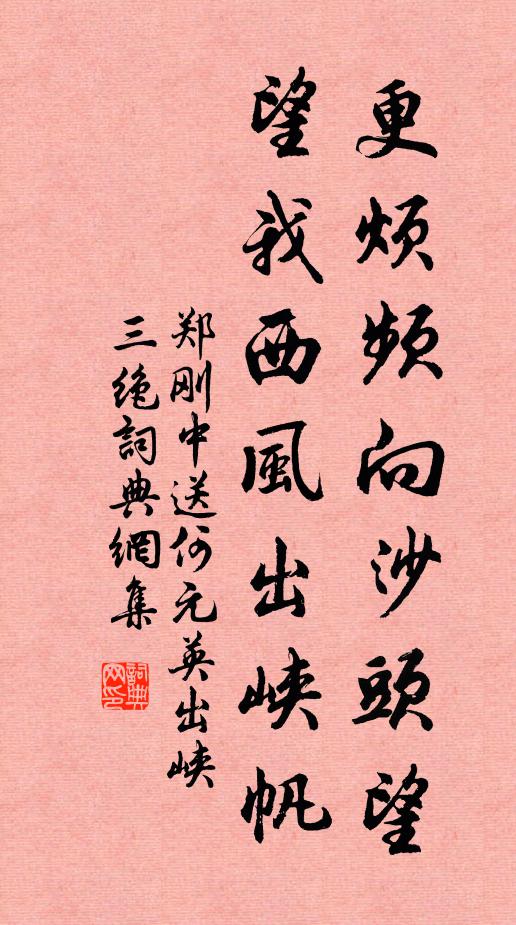 更烦频向沙頭望
望我西風出峡帆
郑刚中送何元英出峡
三绝詞典網集
詞典
网印